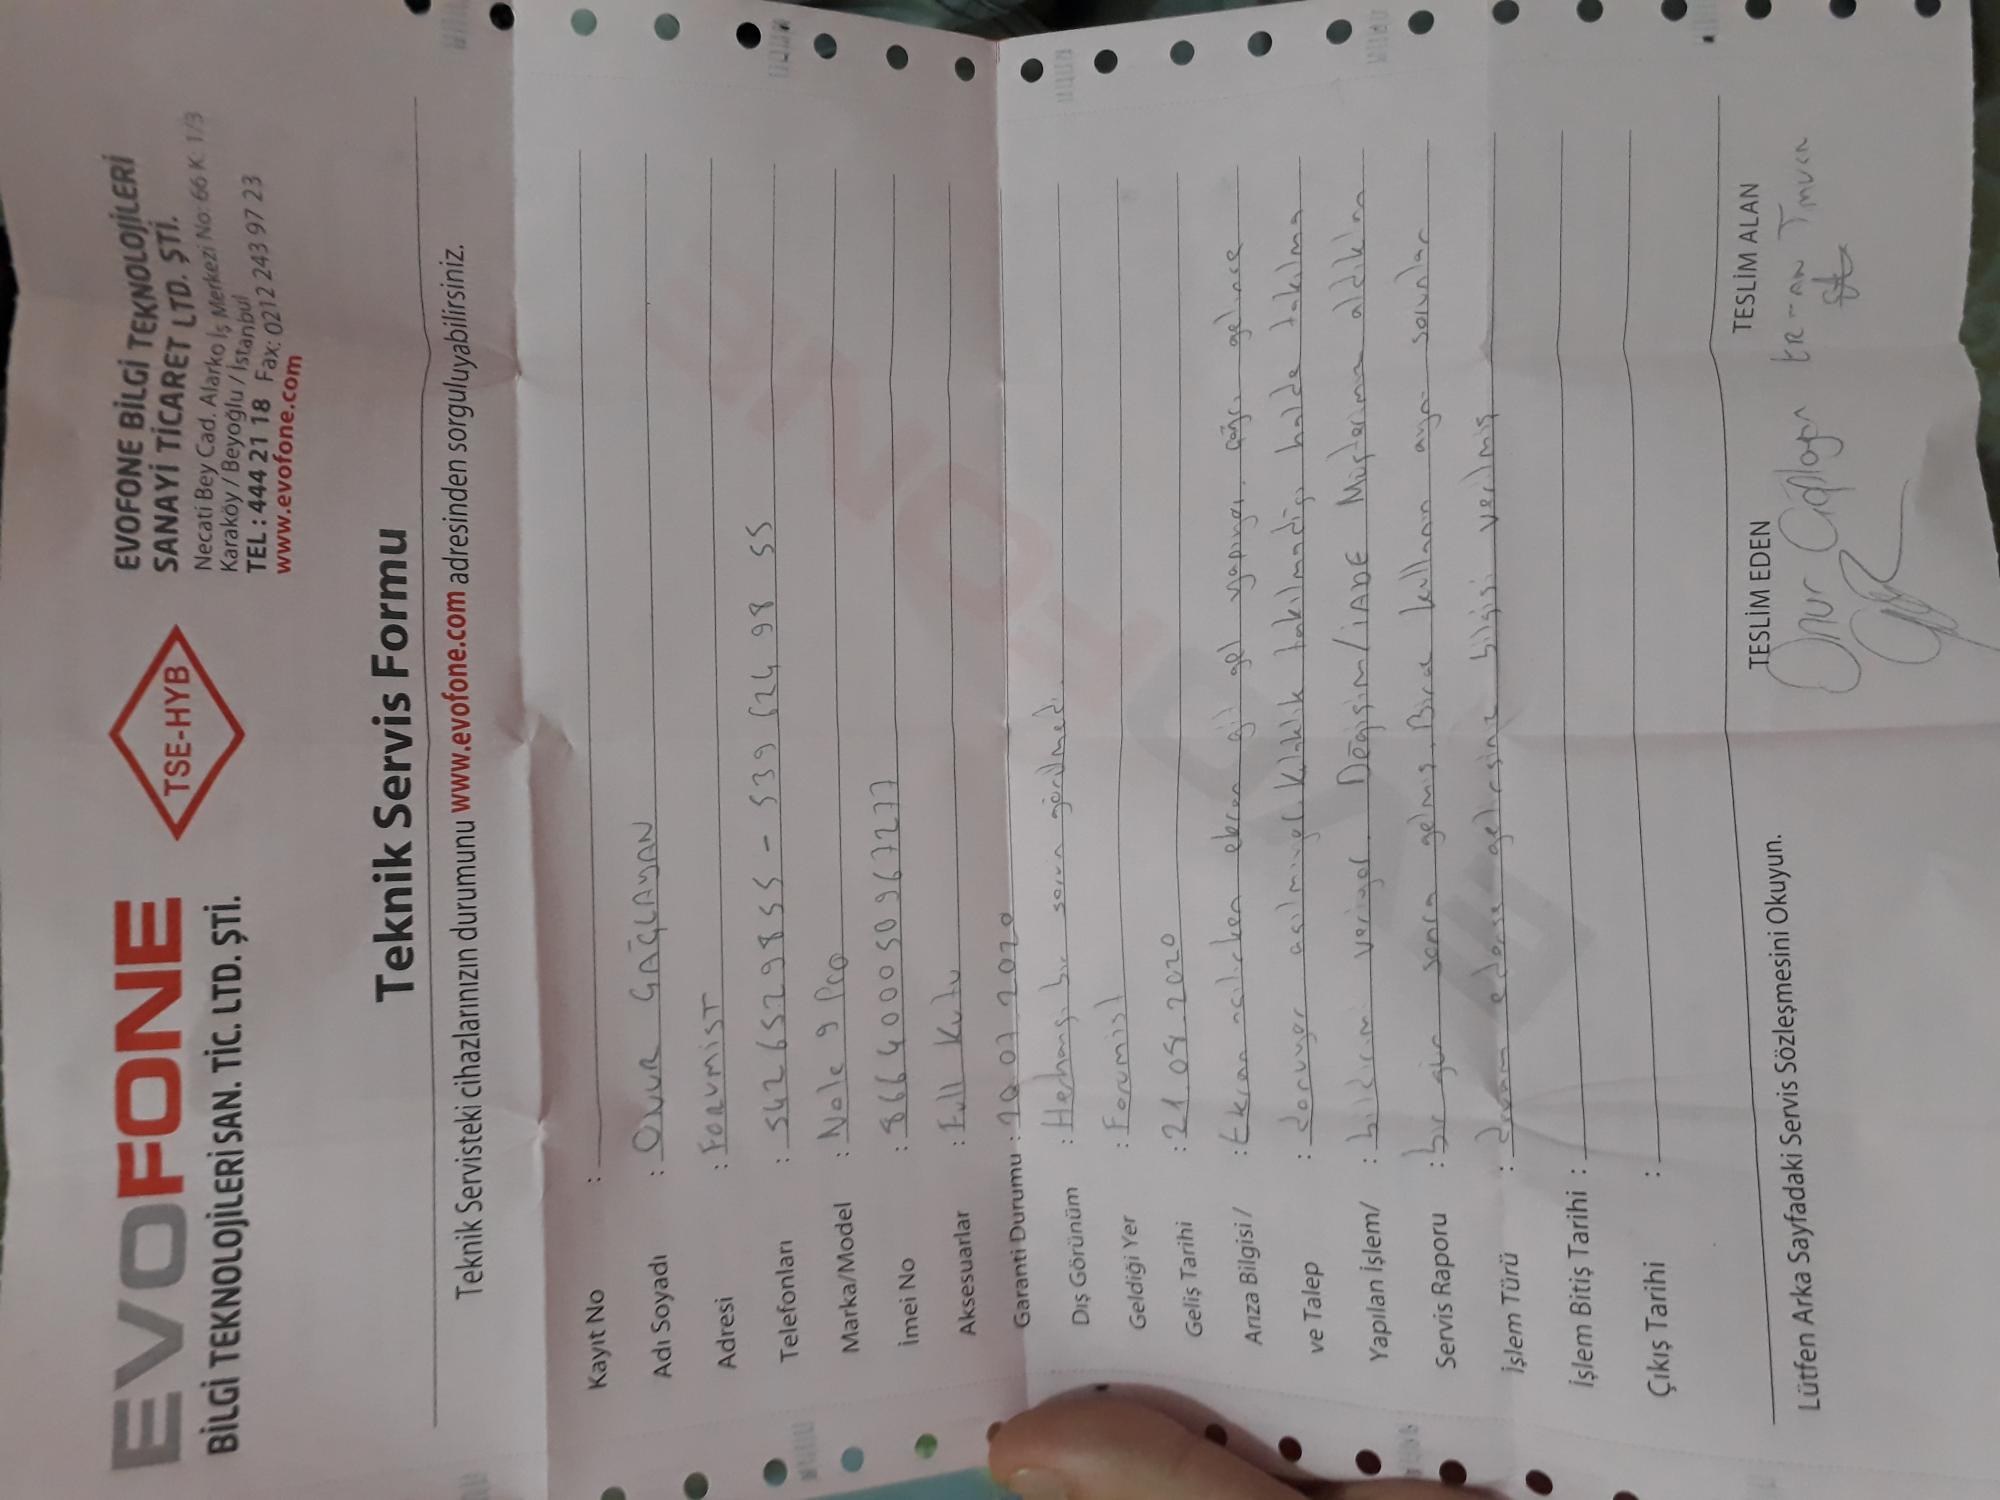 EVOFONE
BİLGİ TEKNOLOJİLERİ SAN. TİC. LTD. ŞTİ.
TSE-HYB
EVOFONE BİLGİ TEKNOLOJİLERİ
SANAYİ TİCARET LTD. ŞTİ.
Necati Bey Cad. Alarko İş Merkezi No: 66 K: 1/3
Karaköy / Beyoğlu / İstanbul
TEL : 444 21 18 Fax: 0212 243 97 23
www.evofone.com
Teknik Servis Formu
Teknik Servisteki cihazlarınızın durumunu www.evofone.com adresinden sorguluyabilirsiniz.
Kayıt No :
Adı Soyadı : ONUR ÇAĞLAYAN
Adresi : Forumist
Telefonları : 5426529855 - 539 624 98 55
Marka/Model : Note 9 Pro
İmei No : 866400050967277
Aksesuarlar : Full Kutu
Garanti Durumu : 20.07.2020
Dış Görünüm : Herhangi bir sorun görülmedi.
Geldiği Yer : Forumist
Geliş Tarihi : 21.09.2020
Arıza Bilgisi / : Ekran açılırken ekran git gel yapıyor, çağrı gelince
ve Talep : donuyor açılmıyor, kulaklık takılmadığı halde takılma
Yapılan İşlem/ : bildirimi veriyor. Değişim/İADE Müşterimiz aldıktan
Servis Raporu : bir gün sonra gelmiş. Biraz kullanın aynı sorunlar
İşlem Türü : devam ederse gelirsiniz bilgisi verilmiş
İşlem Bitiş Tarihi :
Çıkış Tarihi :
Lütfen Arka Sayfadaki Servis Sözleşmesini Okuyun.
TESLİM EDEN TESLİM ALAN
Onur Çağlayan